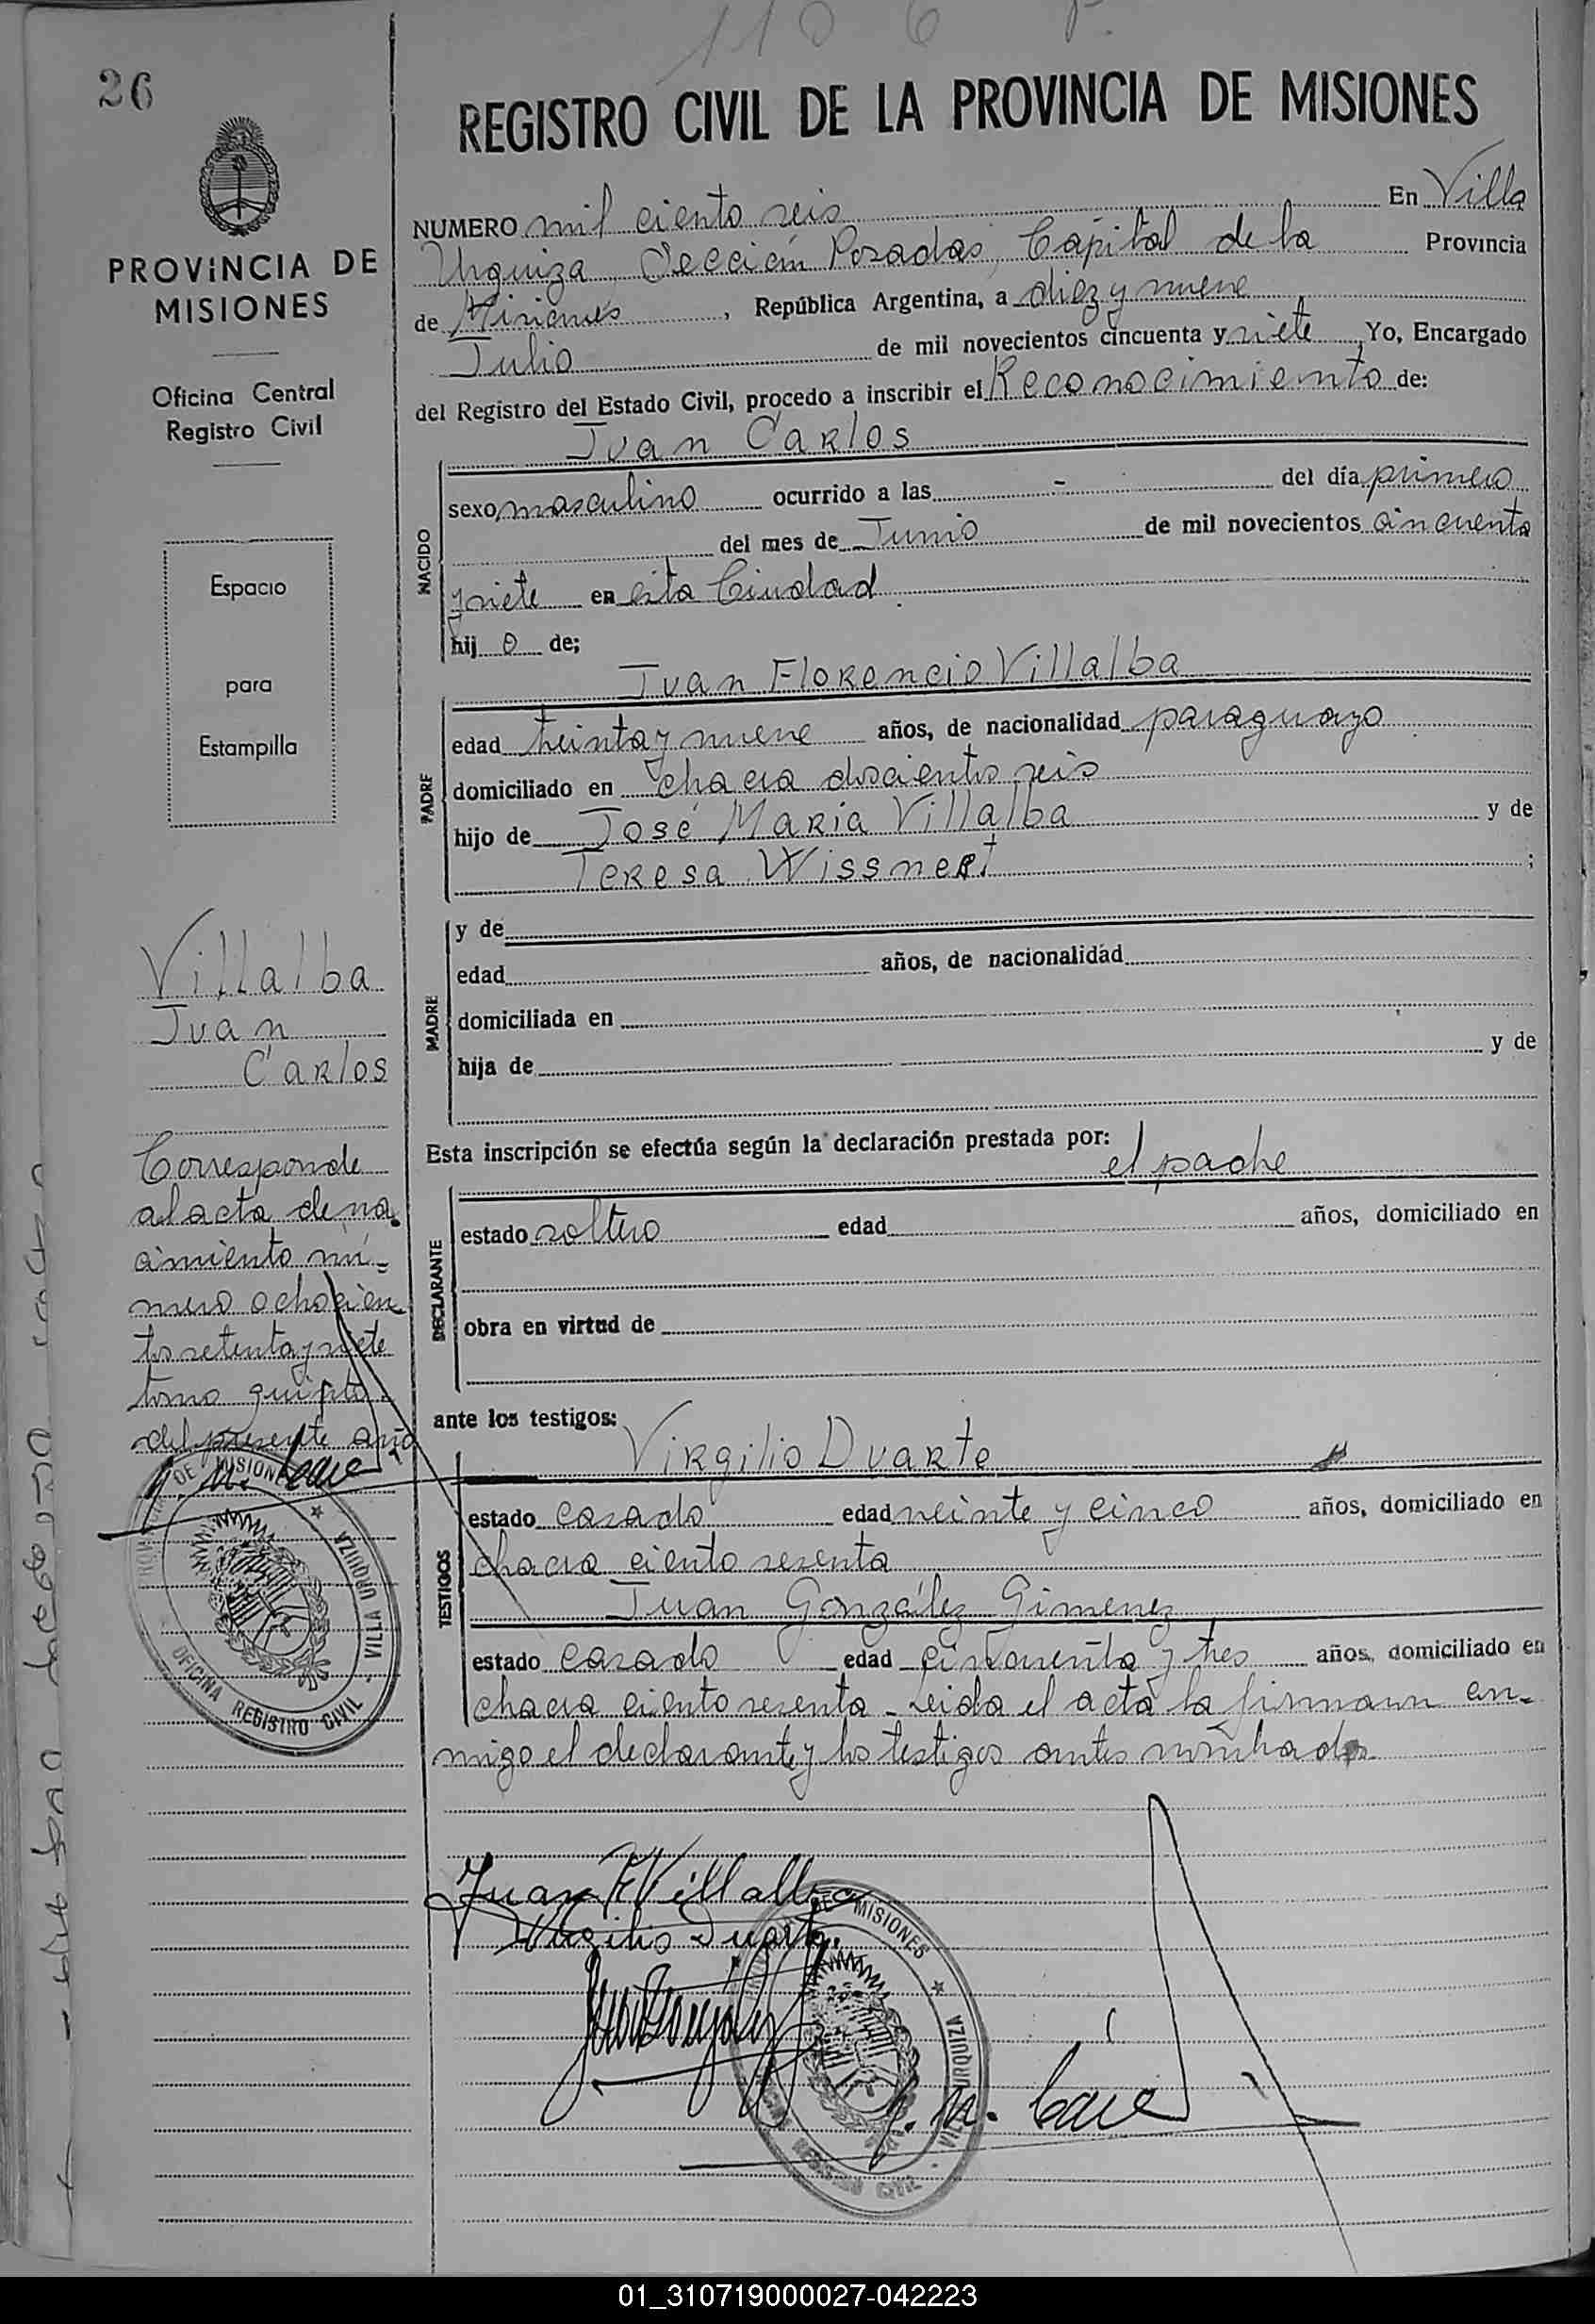 1106
26
REGISTRO CIVIL DE LA PROVINCIA DE MISIONES
PROVINCIA DE
MISIONES
Oficina Central
Registro Civil
Espacio
para
Estampilla
NUMERO mil ciento seis En Villa
Urquiza, Sección Posadas, Capital de la Provincia
de Misiones, República Argentina, a diez y nueve
Julio de mil novecientos cincuenta y siete, Yo, Encargado
del Registro del Estado Civil, procedo a inscribir el Reconocimiento de:
Juan Carlos
NACIDO
sexo masculino ocurrido a las - del día primero
del mes de Junio de mil novecientos cincuenta
y siete en esta Ciudad
hij o de;
Juan Florencio Villalba
PADRE
edad treinta y nueve años, de nacionalidad paraguayo
domiciliado en chacra doscientos seis
hijo de José María Villalba y de
Teresa Wissnert ;
MADRE
y de
edad años, de nacionalidad
domiciliada en
hija de y de
Esta inscripción se efectúa según la declaración prestada por:
el padre
DECLARANTE
estado soltero edad años, domiciliado en
obra en virtud de
ante los testigos:
Virgilio Duarte
TESTIGOS
estado casado edad veinte y cinco años, domiciliado en
chacra ciento sesenta
Juan González Gimenez
estado casado edad cincuenta y tres años, domiciliado en
chacra ciento sesenta - Leida el acta la firmaron con-
migo el declarante y los testigos antes nombrados
Villalba
Juan
Carlos
Corresponde
al acta de na-
cimiento nú-
mero ochocien-
tos setenta y siete
tomo quinto
del presente año
DE MISIONES
VILLA URQUIZA
OFICINA REGISTRO CIVIL
Juan F Villalba
Virgilio Duarte.
Juan González
DE MISIONES
VILLA URQUIZA
OFICINA REGISTRO CIVIL
01_310719000027-042223